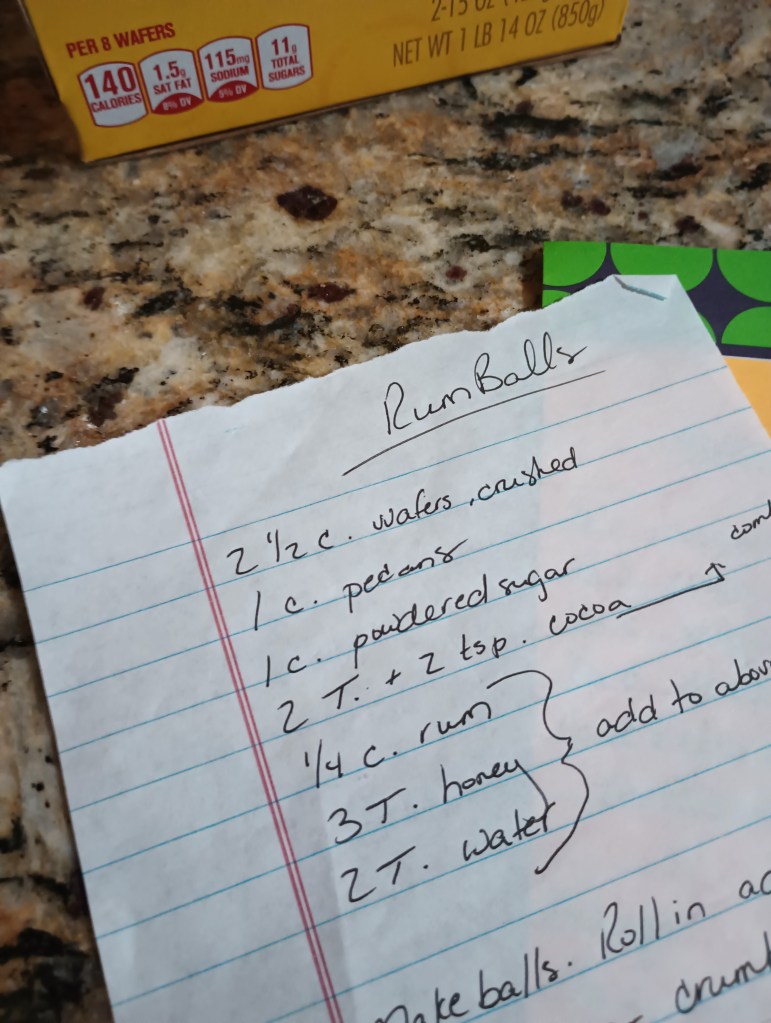 2-15 OZ
NET WT 1 LB 14 OZ (850g)
PER 8 WAFERS
140 CALORIES
1.5g SAT FAT 8% DV
115mg SODIUM 5% DV
11g TOTAL SUGARS
Rum Balls
2 1/2 c. wafers, crushed
1 c. pecans
1 c. powdered sugar
2 T. + 2 tsp. cocoa
1/4 c. rum
3 T. honey
2 T. water
add to
Make balls. Roll in